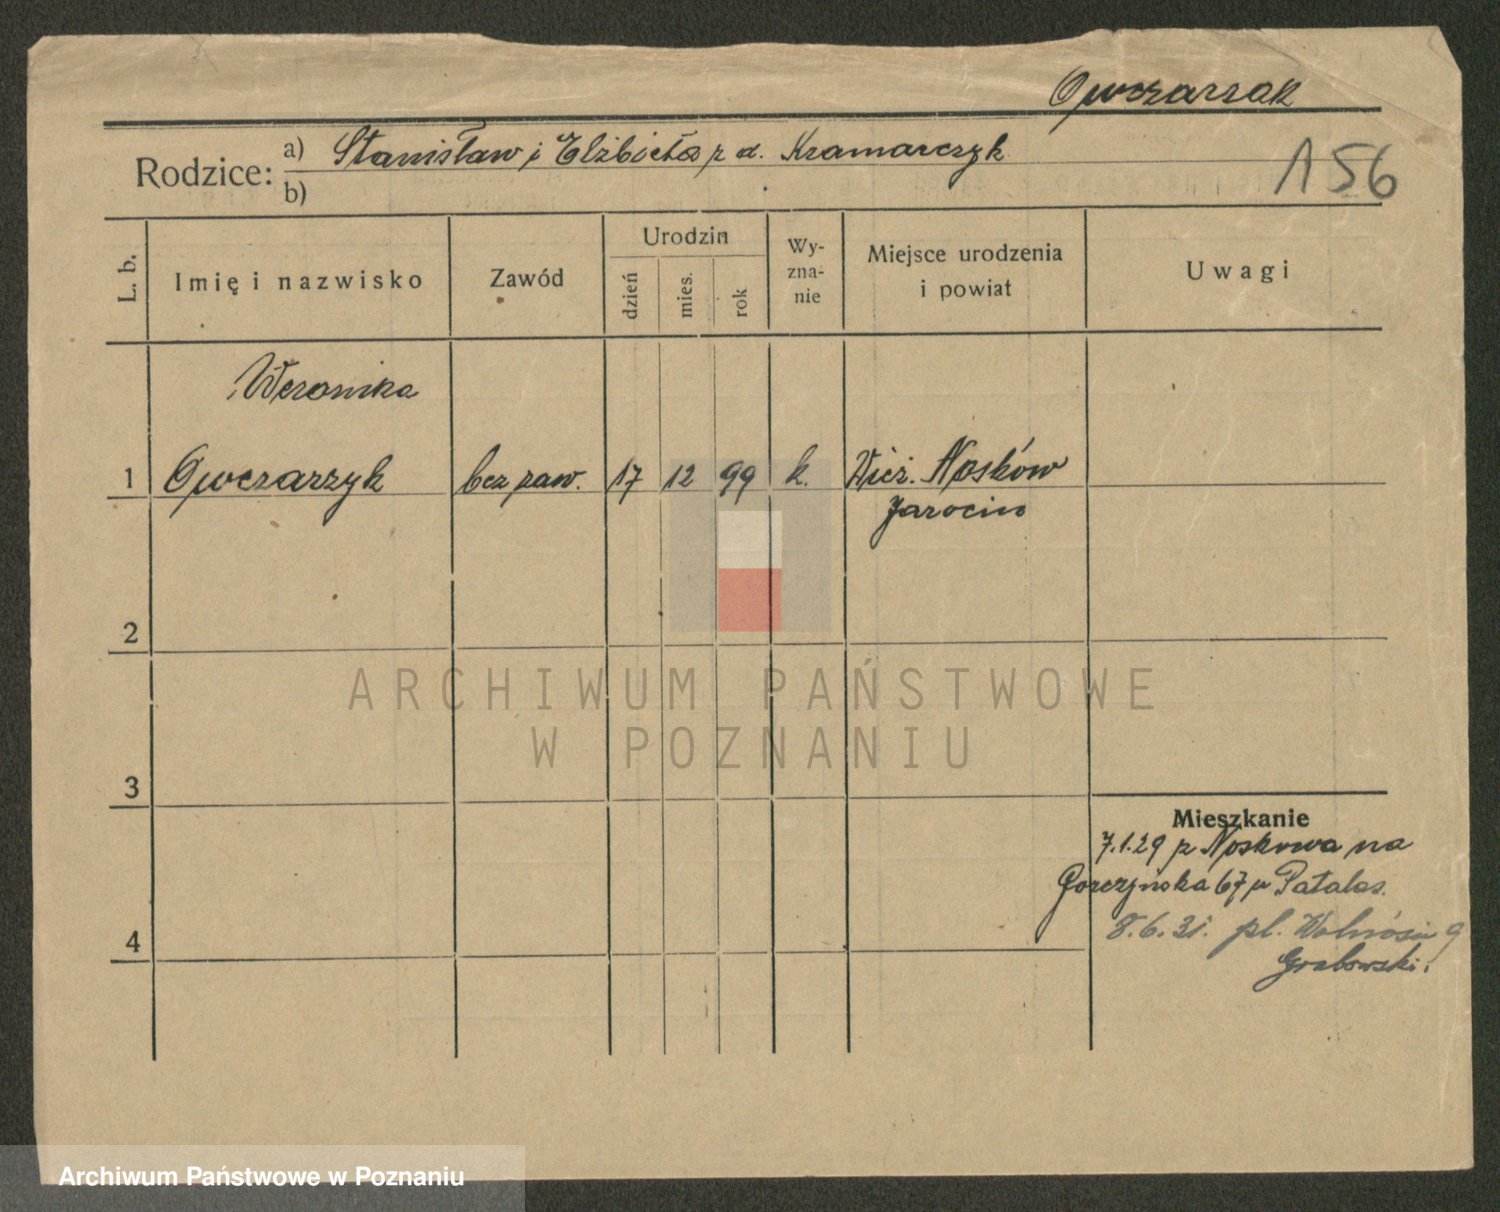 Owczarzak
Rodzice: a) Stanisław i Elżbieta z d. Kramarczyk
b)
156
L. b.
Imię i nazwisko
Zawód
Urodzin
dzień
mies.
rok
Wy-
zna-
nie
Miejsce urodzenia
i powiat
Uwagi
Weronika
1 Owczarzyk bez zaw. 17 12 99 k. Nosków
Jarocin
2
3
4
Mieszkanie
7.1.29 z Noskowa na
Gorczyńska 67 u Patalas.
8.6.31. pl. Wolności 9
Grabowski.
ARCHIWUM PAŃSTWOWE
W POZNANIU
Archiwum Państwowe w Poznaniu